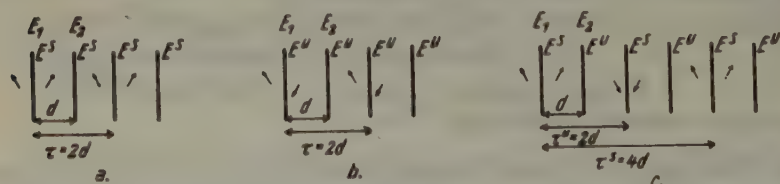 E₁ E₂
E^S E^S E^S E^S
d
τ=2d
a.
E₁ E₂
E^U E^U E^U E^U
d
τ=2d
b.
E₁ E₂
E^S E^U E^S E^U E^S E^U
d
τ^u=2d
τ^s=4d
c.